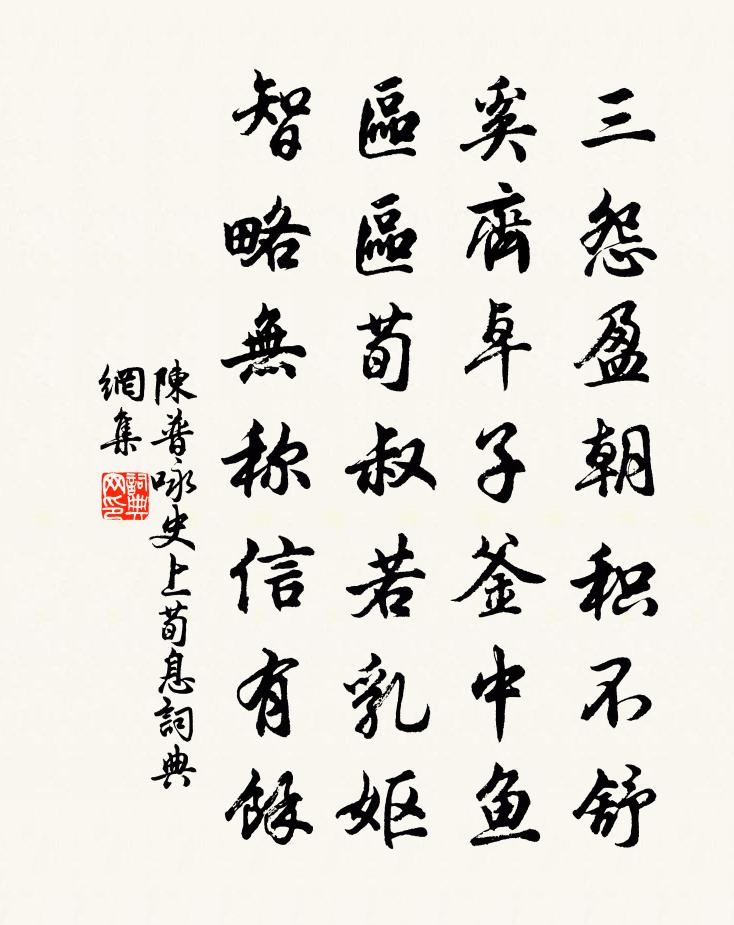 三怨盈朝积不舒
奚齊卓子釜中鱼
區區荀叔若乳妪
智略無称信有馀
陳普咏史上荀息詞典
網集
詞典
网印